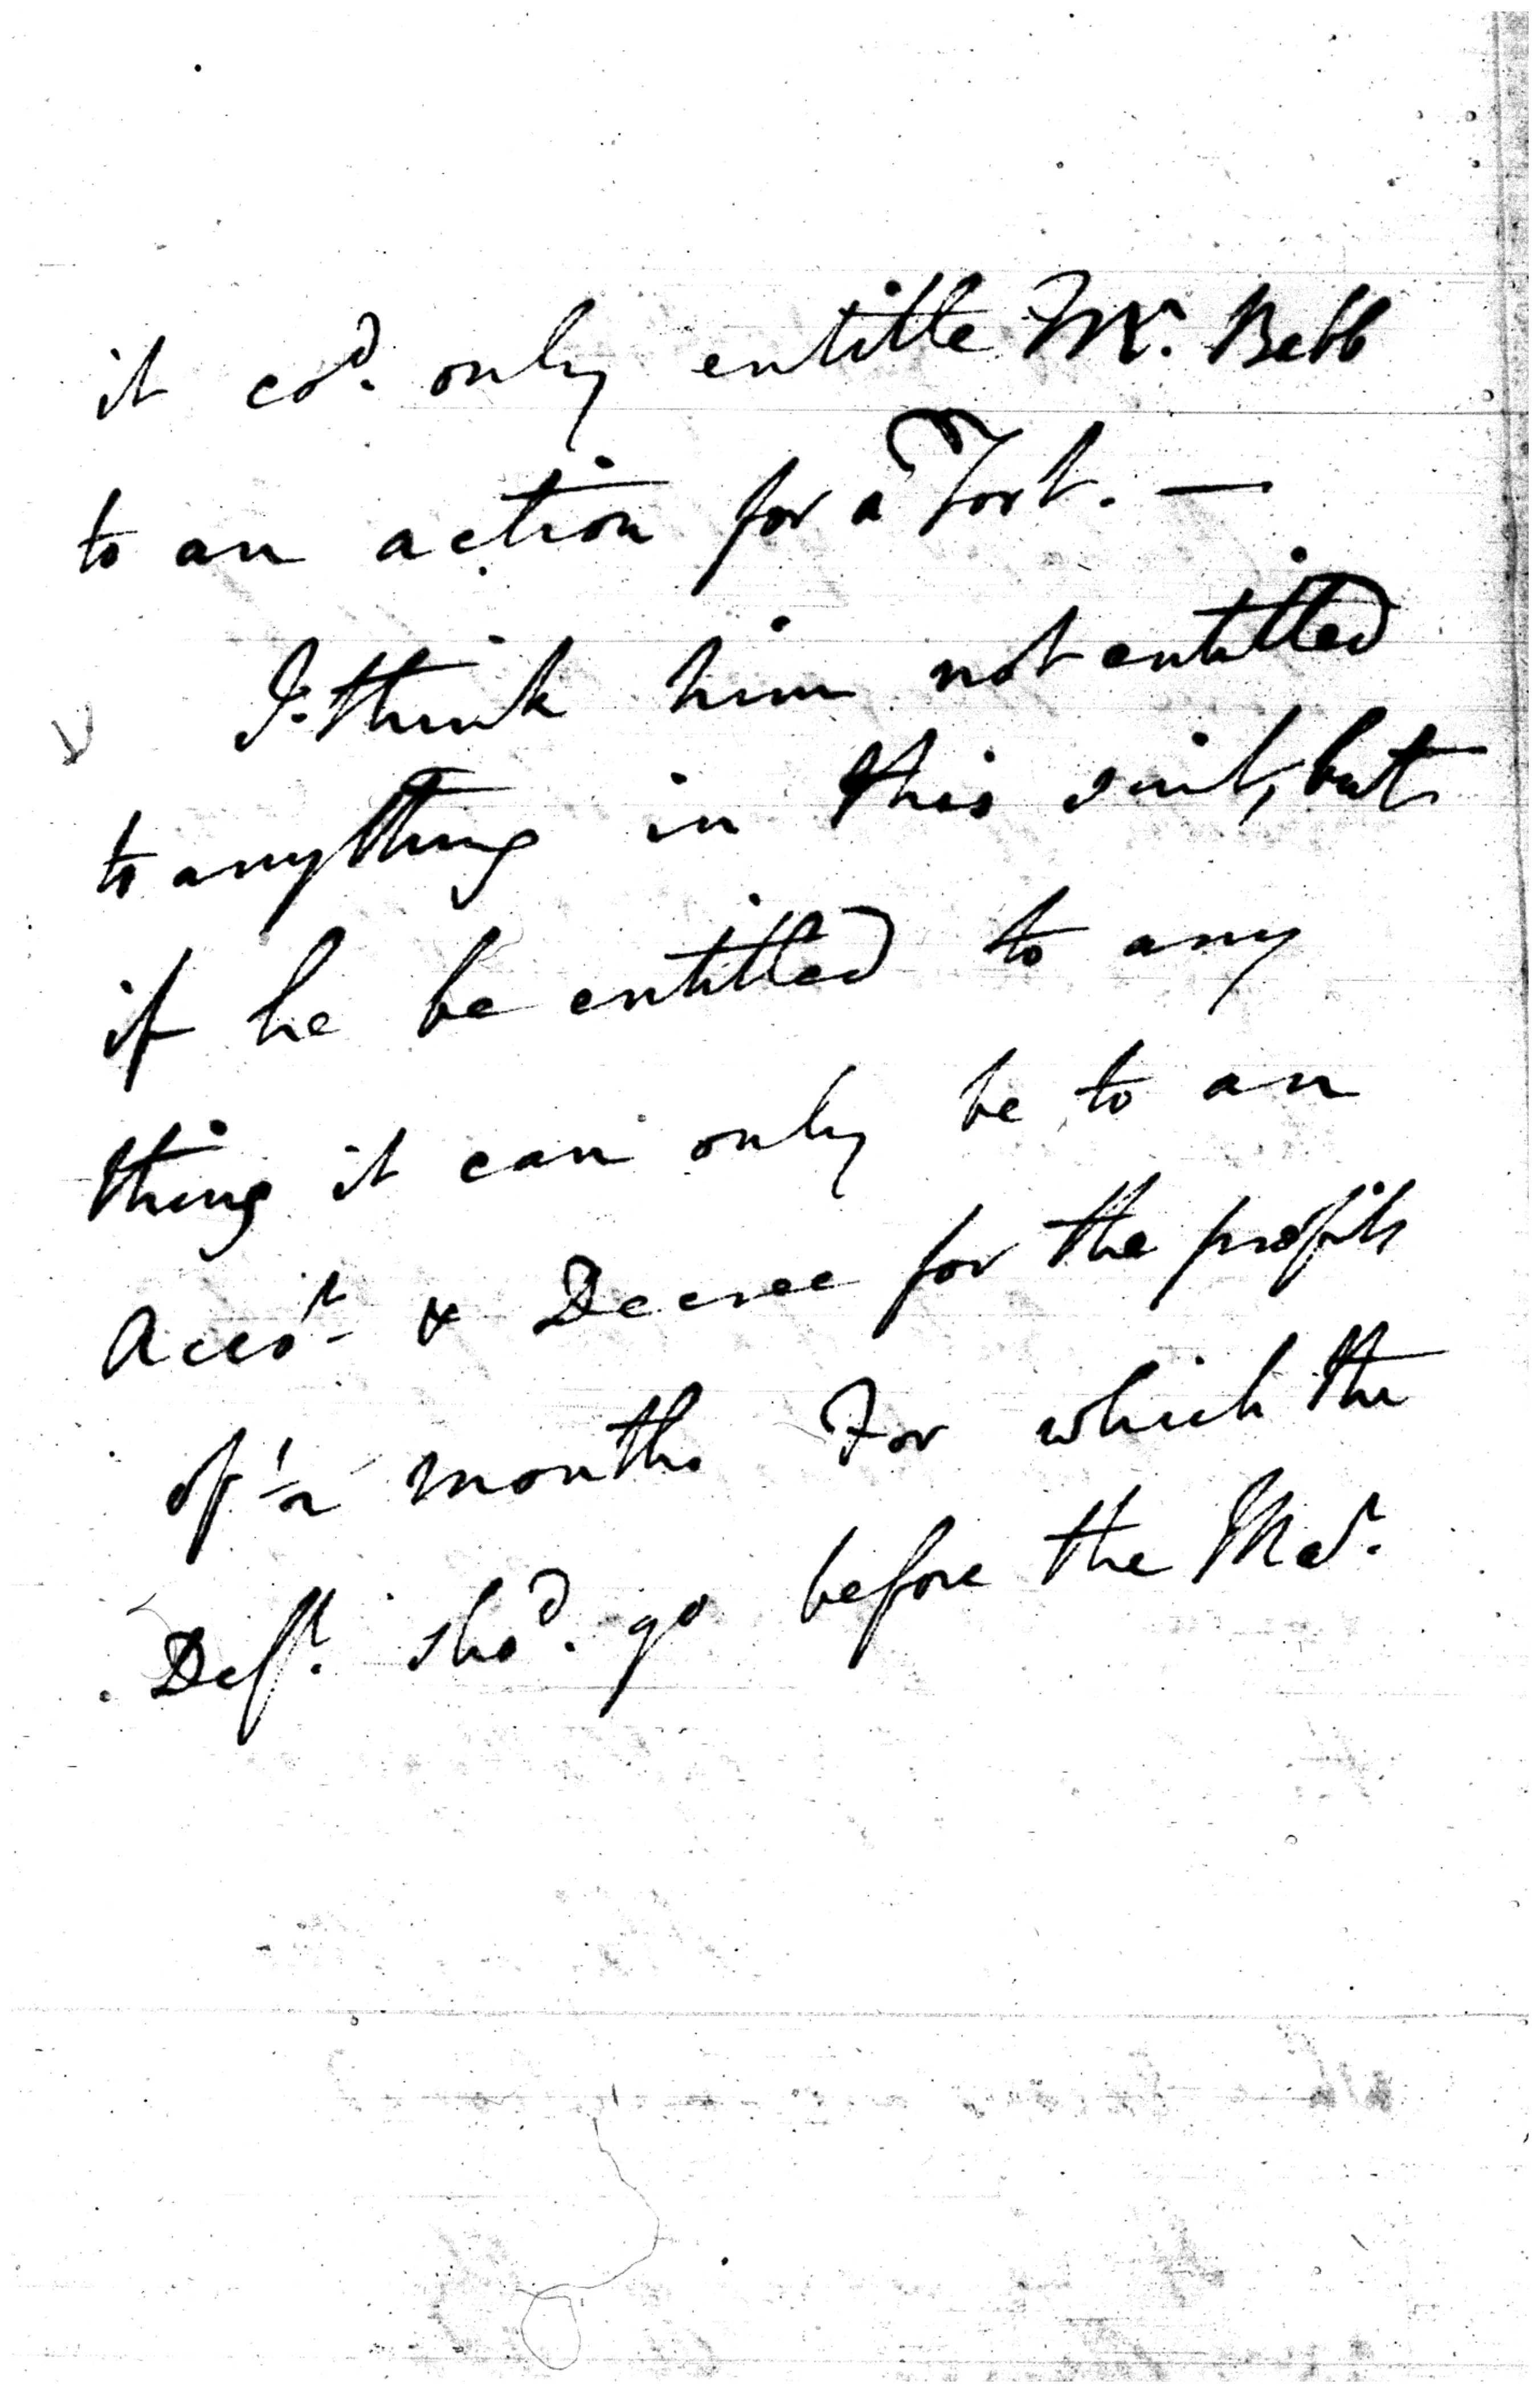 it cod. only entitle Mr. Bebb
to an action for a Tort. —
I think him not entitled
to anything in this suit, but
if he be entitled to any
thing it can only be to an
Accot. & Decree for the profits
of ½ months For which the
Deft. shod. go before the Mar.